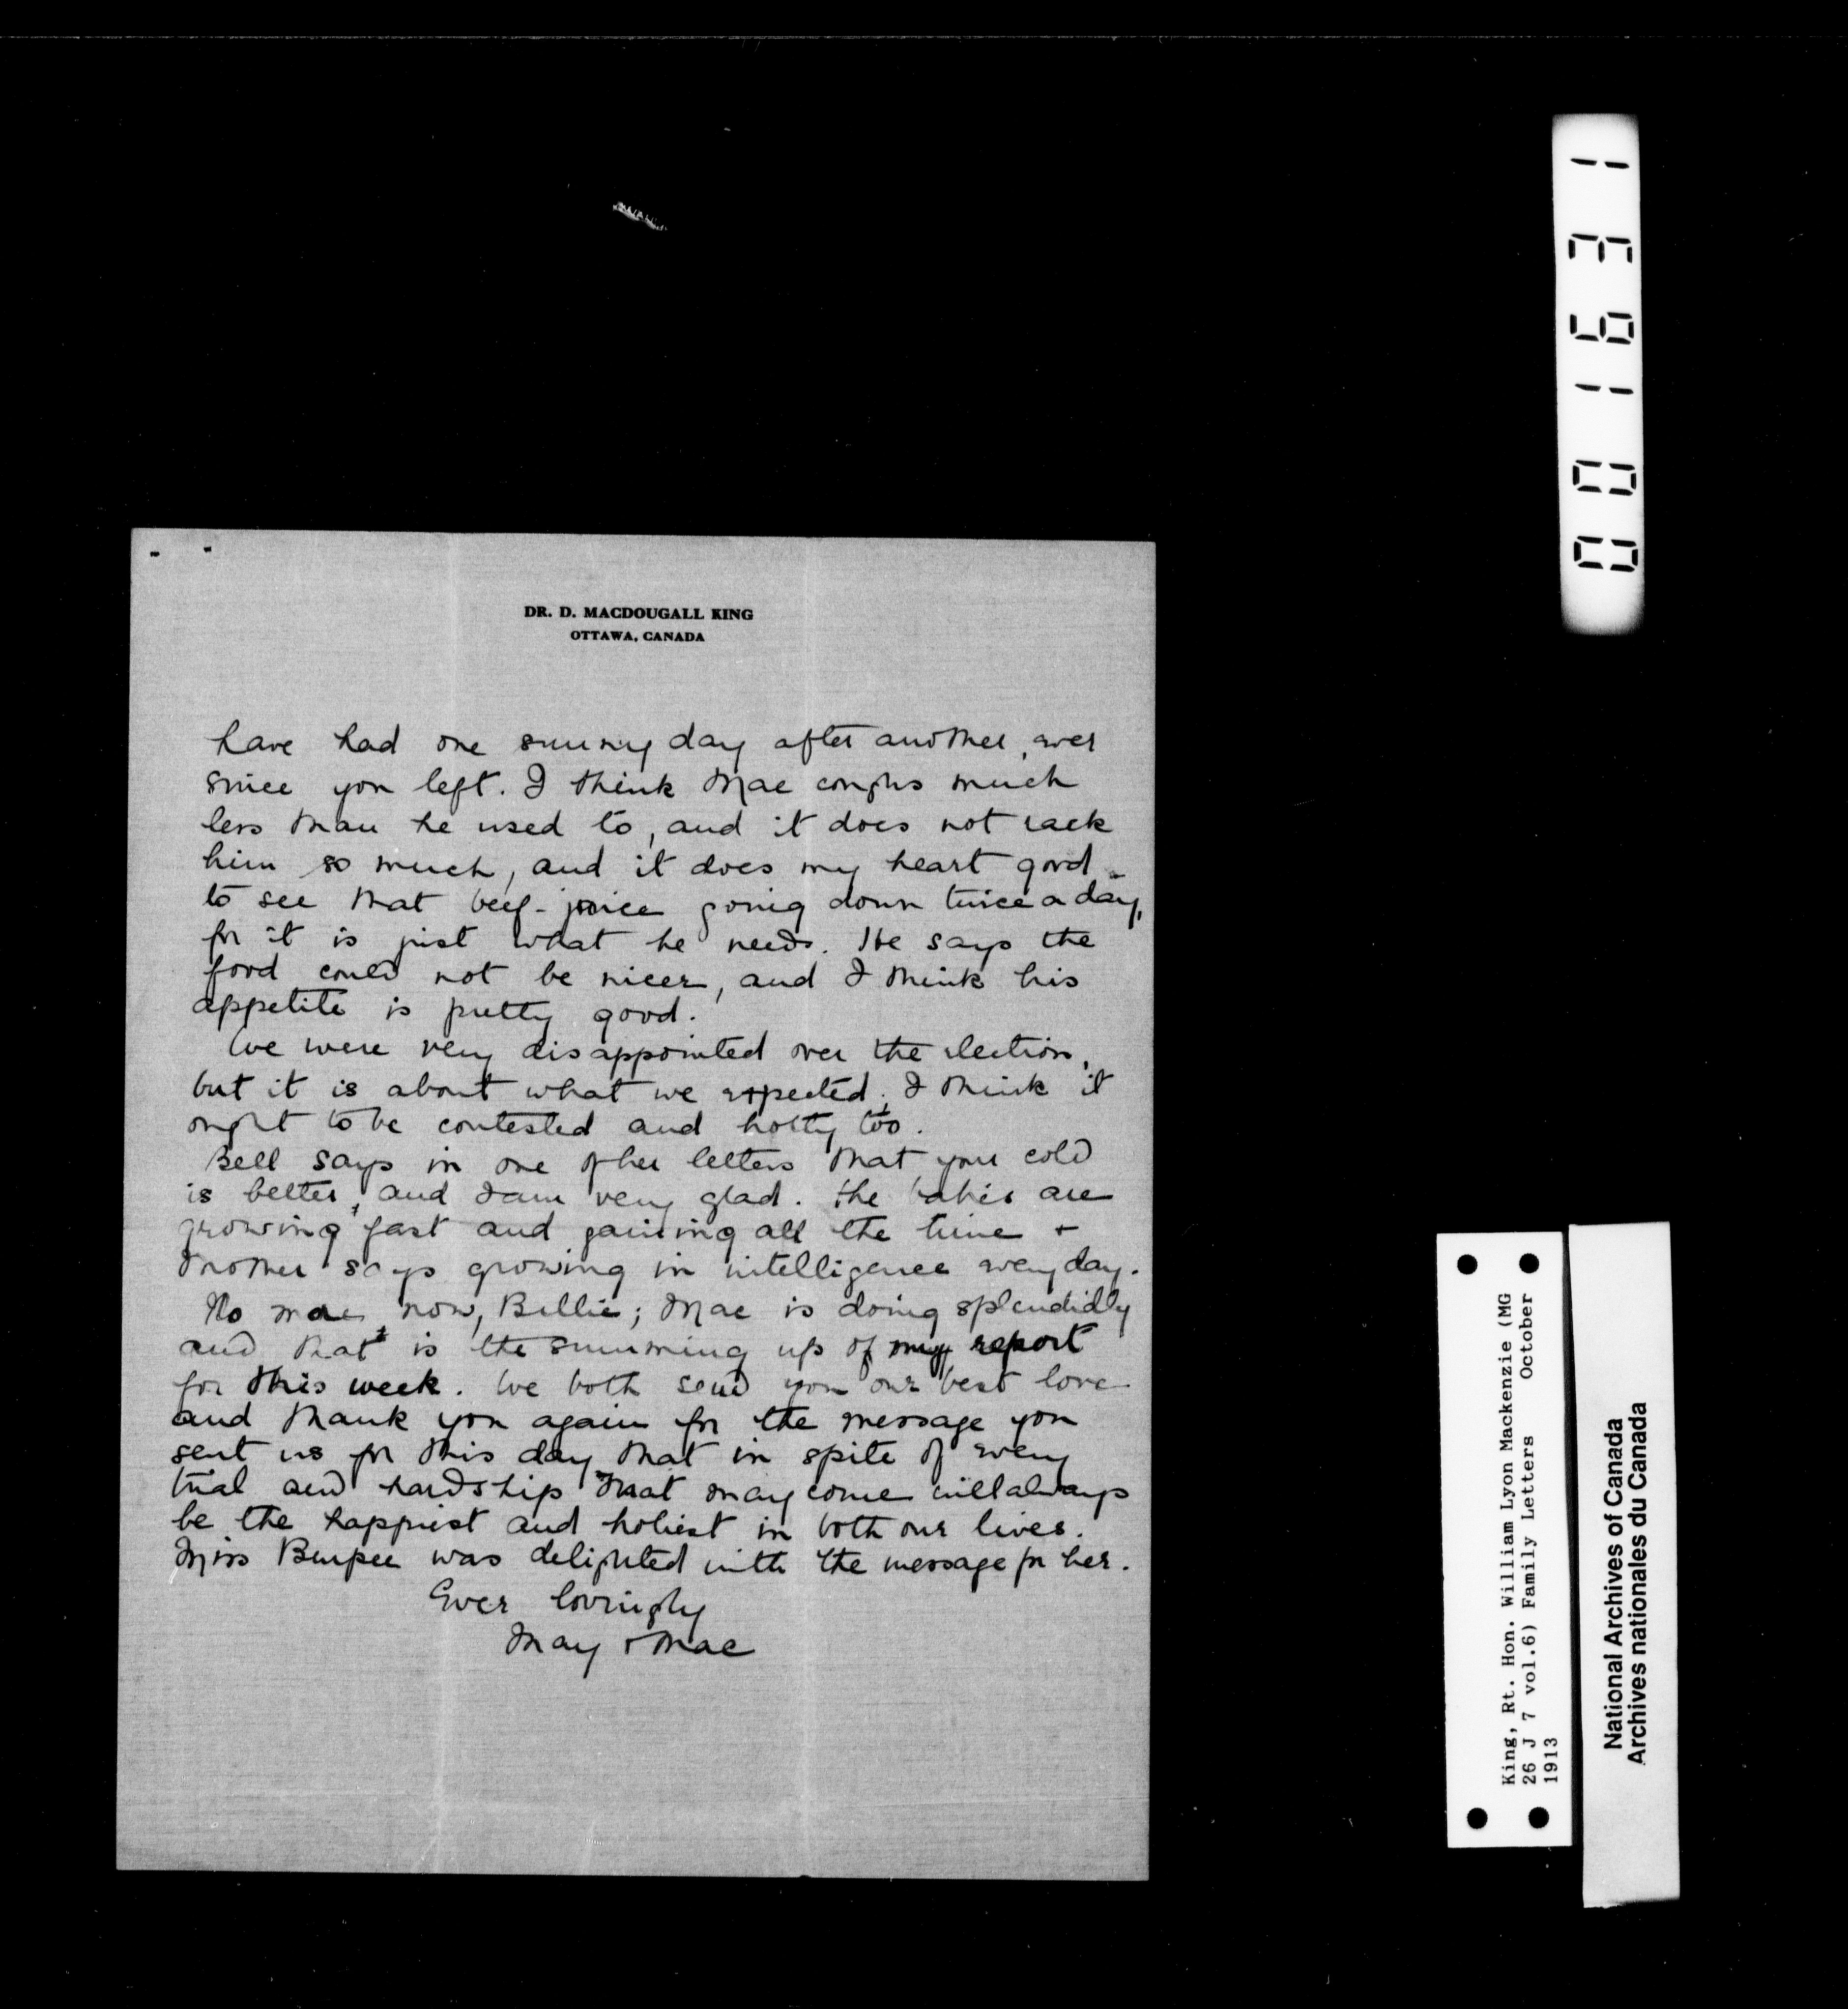 DR. D. MACDOUGALL KING
OTTAWA, CANADA
have had one sunny day after another, ever
since you left. I think Mac coughs much
less than he used to, and it does not rack
him so much, and it does my heart good
to see that beef-juice going down twice a day,
for it is just what he needs. He says the
food could not be nicer, and I think his
appetite is pretty good.
We were very disappointed over the election,
but it is about what we expected. I think it
ought to be contested and hotly too.
Bell says in one of her letters that your cold
is better, and I am very glad. The babies are
growing fast and gaining all the time +
Mother says growing in intelligence every day.
No more now, Billie; Mac is doing splendidly
and that is the summing up of my report
for this week. We both send you our best love
and thank you again for the message you
sent us for this day that in spite of every
trial and hardship that may come will always
be the happiest and holiest in both our lives.
Miss Burpee was delighted with the message for her.
Ever lovingly
May + Mac
001631
King, Rt. Hon. William Lyon Mackenzie (MG
26 J 7 vol.6) Family Letters October
1913
National Archives of Canada
Archives nationales du Canada